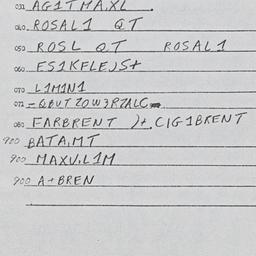 031 AG1TMA.XL .
040 ROSAL1 QT
050 ROSL QT ROSAL1
060 ES1KFLEJS+
070 L1M1N1
071 -QBUTZOW3RZALC
080 FARBRENT )+ C1G1BRENT
900 BATA.MT
900 MAXV.L1M
900 A+BREN